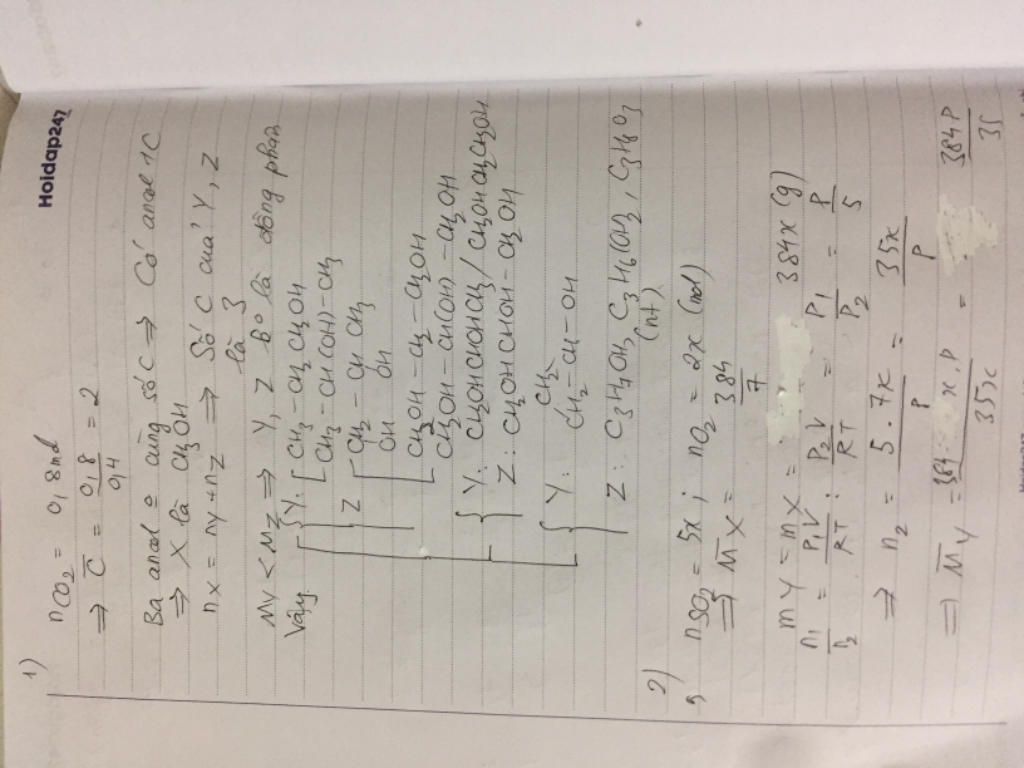 Hoidap247
1)
nCO2 = 0,8 mol
⇒ C̅ = 0,8/0,4 = 2
Ba ancol ≠ cùng số C ⇒ Có ancol 1C
⇒ X là CH3OH
nX = nY + nZ ⇒ Số C của Y, Z
là 3
MY < MZ ⇒ Y, Z ko là đồng phân
Vậy { Y: [ CH3-CH2CH2OH
CH3-CH(OH)-CH3
Z [ CH2-CHCH3
OH OH
[ CH2OH-CH2-CH2OH
CH2OH-CH(OH)-CH2OH
{ Y: CH2OHCHOHCH3/CH2OHCH2CH2OH
Z: CH2OHCHOH-CH2OH
{ Y: CH2=CH-OH
CH2
Z: C3H7OH, C3H6(OH)2, C3H8O3
2)
nSO2 = 5x; nO2 = 2x (mol)
(nt)
⇒ M̅X = 384/7
mY = mX = 384x (g)
n1/n2 = P1V/RT : P2V/RT = P1/P2 = P/5
⇒ n2 = 5.7x/P = 35x/P
⇒ M̅Y = 384x.P/35x = 384P/35